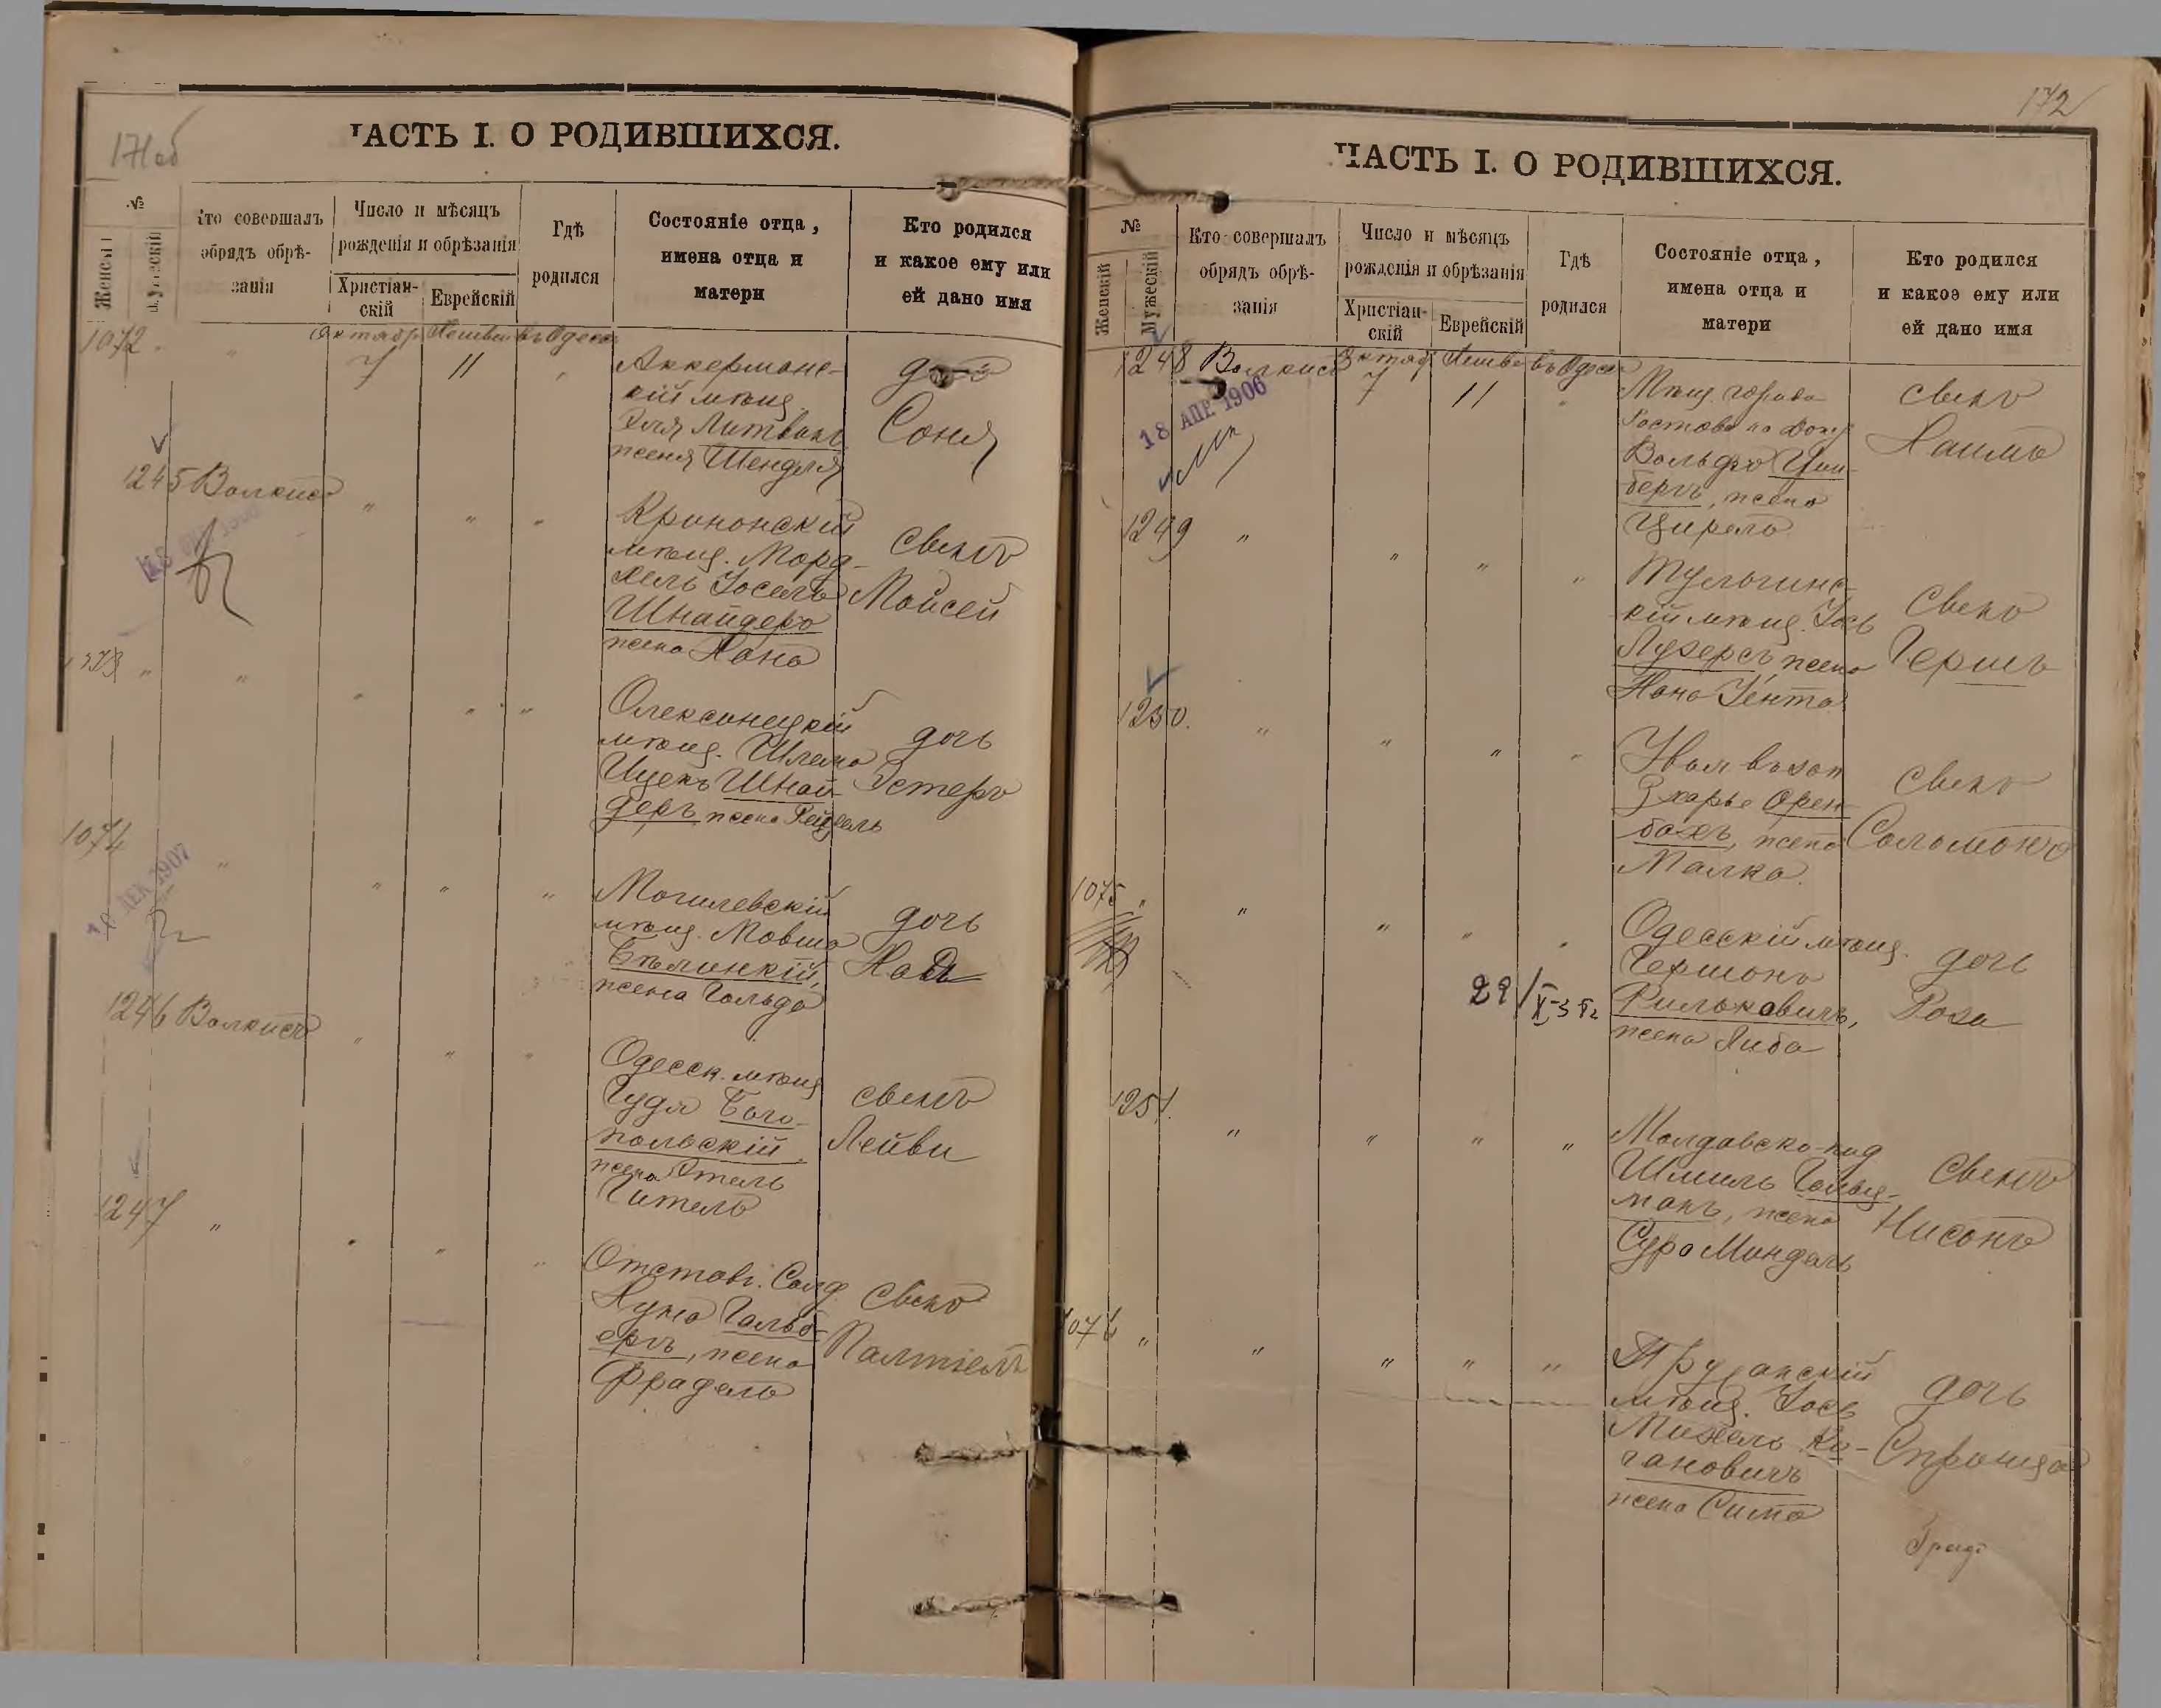 171 об
ЧАСТЬ I. О РОДИВШИХСЯ.
№
Женскій
Мужескій
Кто совершалъ
обрядъ обрѣ-
занія
Число и мѣсяцъ
рожденія и обрѣзанія
Христіан-
скій
Еврейскій
Гдѣ
родился
Состояніе отца,
имена отца и
матери
Кто родился
и какое ему или
ей дано имя
1072 " Октябр. Хешвон въ Одессѣ
7 11
Аккерманс-
кій мѣщ.
Эля Литвакъ
жена Шендля
дочь
Соня
1245 Волкисъ " " "
Криконскій
мѣщ. Морд-
хель Іосель
Шнайдеръ
жена Хана
сынъ
Мойсей
1073 " " " " "
Олексинецкій
мѣщ. Шлема
Ицекъ Шнай-
деръ, жена Рейзель
дочь
Эстеръ
1074 " " " "
10 ДЕК 1907
Могилевскій
мѣщ. Мовша
Бѣлинкій,
жена Гольда
дочь
1246 Волкисъ " " "
Одесск. мѣщ.
Гудл Бого-
польскій,
жена Этель
Гитель
сынъ
Лейви
1247 " " " "
Отставн. Солд.
Нухим Гольдб-
ергъ, жена
Фрадель
сынъ
Палтіелъ
172
ЧАСТЬ I. О РОДИВШИХСЯ.
№
Женскій
Мужескій
Кто совершалъ
обрядъ обрѣ-
занія
Число и мѣсяцъ
рожденія и обрѣзанія
Христіан-
скій
Еврейскій
Гдѣ
родился
Состояніе отца,
имена отца и
матери
Кто родился
и какое ему или
ей дано имя
1248 Волкисъ Октяб. Хешво въ Одессѣ
7 11 "
18 АПР 1906
Мѣщ. города
Ростова на Дону
Вольфъ Цим-
бергъ, жена
Цирель
сынъ
Хаимъ
1249 " " " "
Тульчинс-
кій мѣщ. Іось
Лухерсъ, жена
Хана Іента
сынъ
Гершъ
1250. " " " "
Увол. въ зап.
Зхарье Орен-
бахъ, жена
Малка.
сынъ
Соломонъ
1075 " " " " "
29/X-3 г.
Одесскій мѣщ.
Гершонъ
Рильковичъ,
жена Либа
дочь
Роза
1251. " " " "
Молдавско-под
Шмиль Гойхц-
манъ, жена
Сура Миндель
сынъ
Нисонъ
1076 " " " " "
Пружанскій
мѣщ. Іось
Михель Ка-
гановичъ
жена Сима
дочь
Спринца